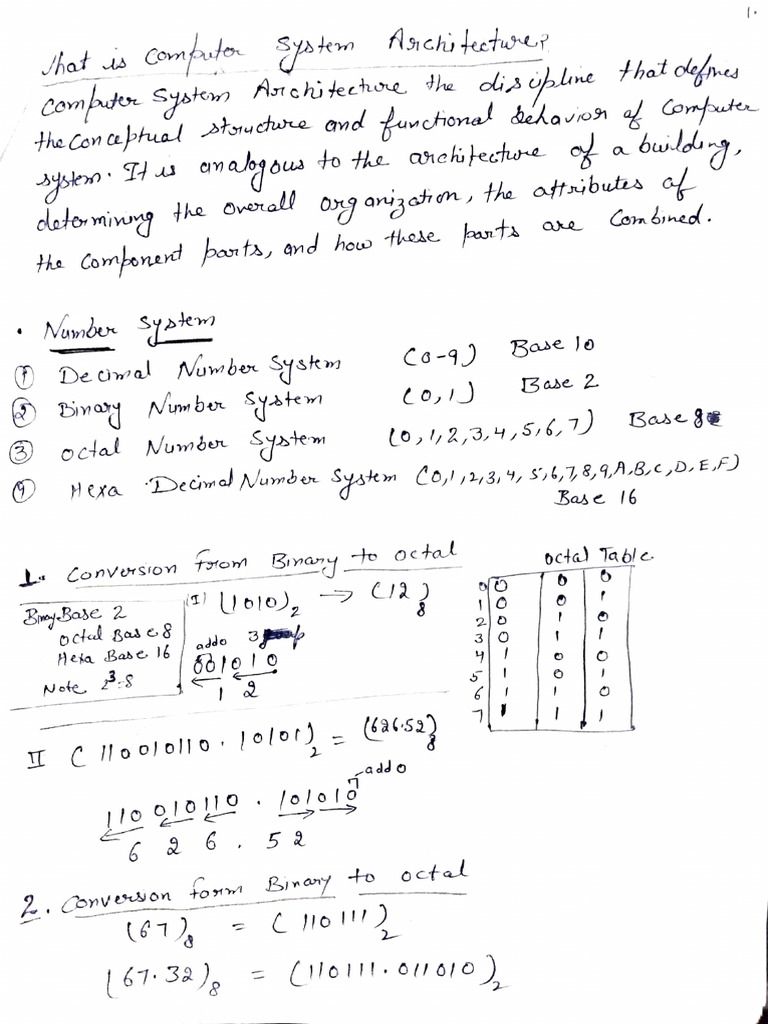 1.
What is Computer System Architecture?
Computer System Architecture the discipline that defines
the Conceptual structure and functional behavior of Computer
system. It is analogous to the architecture of a building,
determining the overall organization, the attributes of
the Component parts, and how these parts are Combined.
• Number System
① Decimal Number System (0-9) Base 10
② Binary Number System (0,1) Base 2
③ Octal Number System (0,1,2,3,4,5,6,7) Base 8
④ Hexa Decimal Number System (0,1,2,3,4,5,6,7,8,9,A,B,C,D,E,F)
Base 16
1. Conversion from Binary to octal
Binary Base 2
Octal Base 8
Hexa Base 16
Note 2³=8
(I) (1010)₂ → (12)₈
add 0 3
001010
1 2
Octal Table
0 0 0 0
1 0 0 1
2 0 1 0
3 0 1 1
4 1 0 0
5 1 0 1
6 1 1 0
7 1 1 1
II (110010110.10101)₂ = (626.52)₈
add 0
110 010 110 . 101010
6 2 6 . 5 2
2. Conversion form Binary to octal
(67)₈ = (110111)₂
(67.32)₈ = (110111.011010)₂